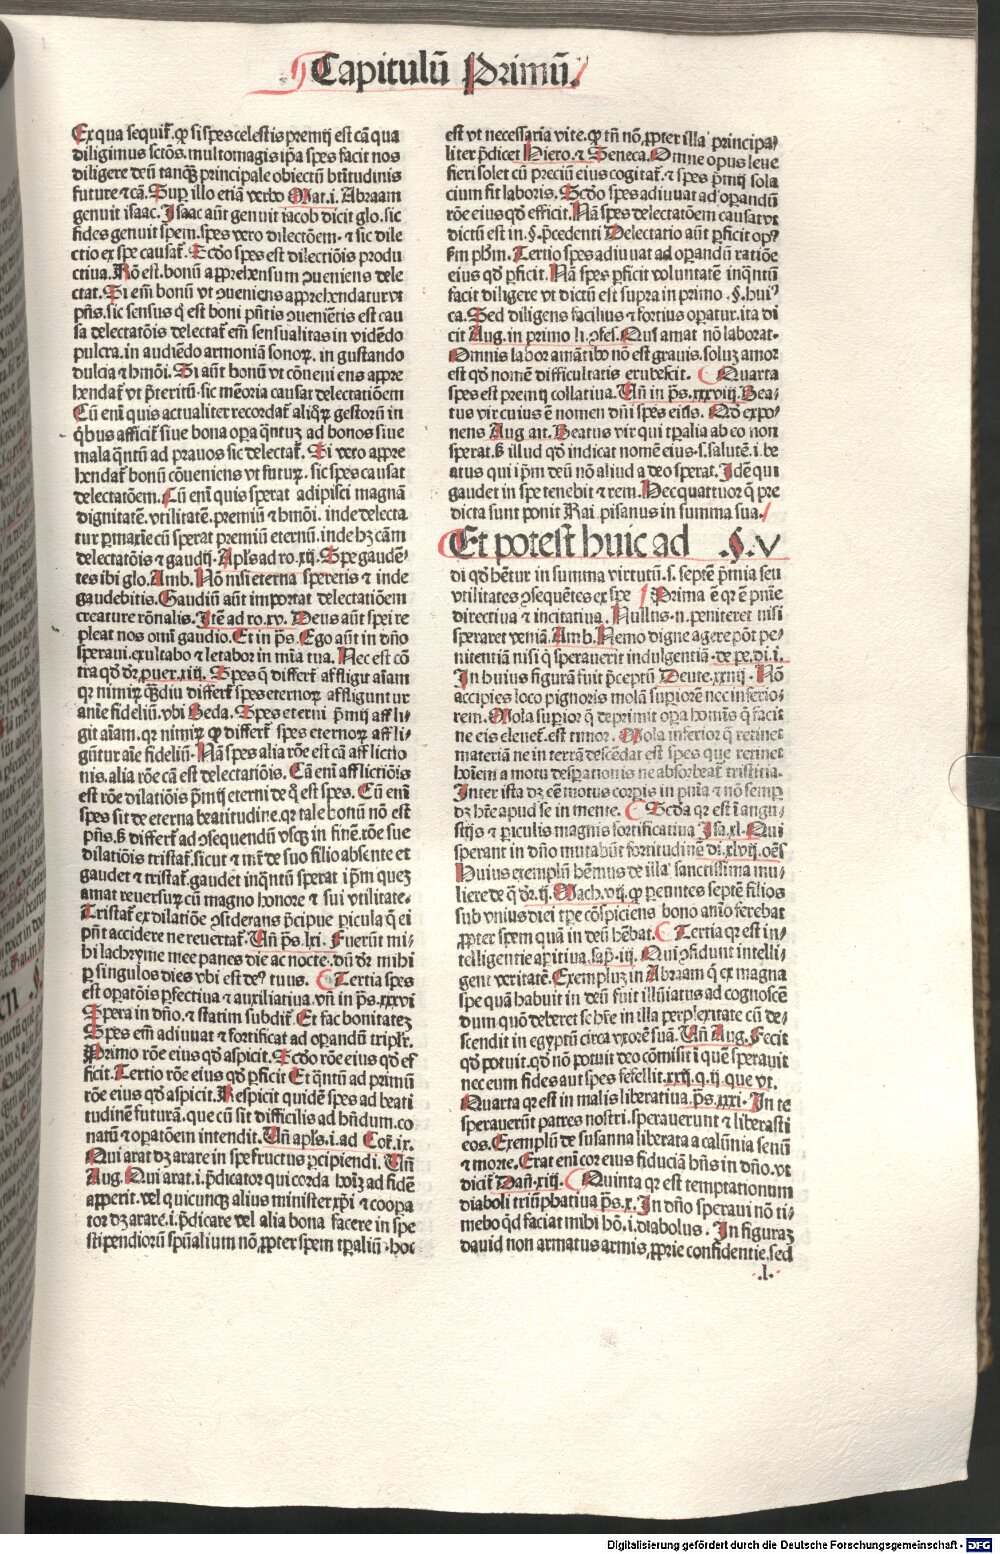 Capitulū Primū.
Ex qua sequit̃. ꝙ si spes celestis premij est cā qua
diligimus sctōs. multomagis ip̃a spes facit nos
diligere deū tanqȝ principale obiectū btītudinis
future ⁊ cā. Sup illo etiā verbo Mat. i. Abraam
genuit isaac. Isaac aūt genuit iacob dicit glo. sic
fides genuit spem. spes vero dilectōem. ⁊ sic dile
ctio ex spe causat̃. Scđo spes est dilectiōis produ
ctiua. Rō est. bonū apprehensum ɔueniens dele
ctat. Si em̄ bonū vt ɔueniens apprehendatur vt
pn̄s. sic sensus q̇ est boni pn̄tis ɔueniētis est cau
sa delectatōis delectat̃ em̄ sensualitas in vidēdo
pulcra. in audiēdo armoniā sonoꝝ. in gustando
dulcia ⁊ hmōi. Si aūt bonū vt cōueniens appre
hendat̃ vt p̄teritū. sic mēoria causat delectatiōem
Cū eni quis actualiter recordat̃ aliqꝝ gestorū in
q̇bus afficit̃ siue bona oꝑa q̄ntuȝ ad bonos siue
mala q̄ntū ad prauos sic delectat̃. Si vero appre
hendat̃ bonū cōueniens vt futuꝝ. sic spes causat
delectatōem. Cū eni quis sperat adipisci magnā
dignitatē. vtilitatē. premiū ⁊ hmōi. inde delecta
tur ꝑ maxīe cū sperat premiū eternū. inde hȝ cām
delectatōis ⁊ gaudij. Apl̃s ad ro. xij. Spe gaudē-
tes ibi glo. Amb. Nō nisi eterna speretis ⁊ inde
gaudebitis. Gaudiū aūt importat delectatiōem
creature rōnalis. Itē ad ro. xv. Deus aūt spei re
pleat nos omī gaudio. Et in ps̄. Ego aūt in dn̄o
speraui. exultabo ⁊ letabor in mīa tua. Nec est cō
tra qđ dr̄ puer. xiij. Spes q̄ differt̃ affligit aīam
qꝛ nimiꝝ qȝdiu differt̃ spes eternoꝝ affliguntur
anīe fideliū. vbi Beda. Spes eterni p̄mij affli-
git aīam. qꝛ nimiꝝ ꝙ differt̃ spes eternoꝝ affli-
gūtur aīe fideliū. Nā spes alia rōe est cā afflictio
nis. alia rōe cā est delectatiōis. Cū eni afflictiōis
est rōe dilatiōis p̄mij eterni de q̇ est spes. Cū eni
spes sit de eterna beatitudine. qꝛ tale bonū nō est
pn̄s. ß differt̃ ad ɔsequendū vsqȝ in finē. rōe sue
dilatiōis tristat̃. sicut ⁊ mr̄ de suo filio absente et
gaudet ⁊ tristat̃. gaudet inq̄ntū sperat ip̄m queȝ
amat reuersuꝝ cū magno honore ⁊ sui vtilitate.
Tristat̃ ex dilatiōe ɔsiderans p̄cipue picula q̄ ei
pn̄t accidere ne reuertat̃. Un̄ ps̄. lxi. Fuerūt mi-
hi lachryme mee panes die ac nocte. dū dr̄ mihi
ꝑ singulos dies vbi est deꝰ tuus. Tertia spes
est opatōis ꝑfectiua ⁊ auxiliatiua. vn̄ in ps̄. xxxvi
Spera in dn̄o. ⁊ statim subdit̃. Et fac bonitateȝ
Spes em̄ adiuuat ⁊ fortificat ad opandū triplr̄.
Primo rōe eius qđ aspicit. Scđo rōe eius qđ ef
ficit. Tertio rōe eius qđ ꝑficit Et q̄ntū ad primū
rōe eius qđ aspicit. Respicit quidē spes ad beati
tudinē futurā. que cū sit difficilis ad hn̄dum. co
natū ⁊ opatōem intendit. Un̄ apl̃s. i. ad Cor̄. ix.
Qui arat dȝ arare in spe fructus ꝑcipiendi. Un̄
Aug. Qui arat. i. p̄dicator qui corda hoīȝ ad fidē
apperit. vel quicunqȝ alius minister xp̄i ⁊ coopa
tor dȝ arare. i. p̄dicare vel alia bona facere in spe
stipendiorū spūalium nō ꝓpter spem tꝑaliū. hoc
est vt necessaria vite. ꝙ tn̄ nō ꝓpter illa principa-
liter p̄dicet Hiero. ⁊ Seneca. Omne opus leue
fieri solet cū preciū eius cogitat̃. ⁊ spes p̄mij sola
cium fit laboris. Scđo spes adiuuat ad opandū
rōe eius qđ efficit. Nā spes delectatōem causat vt
dictū est in. §. p̄cedenti Delectatio aūt ꝑficit opꝰ
fm ph̄m. Tertio spes adiuuat ad opandū ratiōe
eius qđ ꝑficit. Nā spes ꝑficit voluntatē inq̄ntū
facit diligere vt dictū est supra in primo. §. huiꝰ
ca. Sed diligens facilius ⁊ fortius opatur. ita di
cit Aug. in primo li. ɔfes. Qui amat nō laborat.
Omnis labor amātibꝰ nō est grauis. soluȝ amor
est qđ nomē difficultatis erubescit. Quarta
spes est premij collatiua. Un̄ in ps̄. xxxviij. Bea-
tus vir cuius ē nomen dn̄i spes eius. Qđ expo-
nens Aug ait. Beatus vir qui tꝑalia ab eo non
sperat. ß illud qđ indicat nomē eius. s. salutē. i. be
atus qui ip̄m deū nō aliud a deo sperat. Idē qui
gaudet in spe tenebit ⁊ rem. Hec quattuor q̄ pre
dicta sunt ponit Rai. pisanus in summa sua.
Et potest huic ad .§. V
di qđ hētur in summa virtutū. s. septē p̄mia seu
vtilitates ɔsequētes ex spe Prima ē qꝛ ē pn̄ie
directiua ⁊ incitatiua. Nullus. n. peniteret nisi
speraret veniā. Amb. Nemo digne agere pōt pe-
nitentiā nisi q̇ sperauerit indulgentiā. de pe. di. i.
In huius figurā fuit p̄ceptū Deute. xxiiij. Nō
accipies loco pignoris molā supiorē nec inferio-
rem. Mola supior q̄ deprimit opa hoīnis q̄ facit
ne eis eleuet̃. est timor. Mola inferior q̄ retinet
materiā ne in terrā descēdat est spes que retinet
hoīem a motu despationis ne absorbeat̃ tristitia.
Inter ista dȝ eē motus corpis in pn̄ia ⁊ nō semp
dȝ hr̄e apud se in mente. Scđa qꝛ est i angu-
stijs ⁊ piculis magnis fortificatiua Isa. xl. Qui
sperant in dn̄o mutabūt fortitudinē di. xlvij. oēs
Huius exemplū hēmus de illa sanctissima mu-
liere de q̇ dr̄. ij. Mach. vij. q̄ pereuntes septē filios
sub vnius diei tꝑe cōspiciens bono anīo ferebat
ꝓpter spem quā in deū hēbat. Tertia qꝛ est in-
telligentie apitiua. sap. iij. Qui ɔfidunt intelli-
gent veritatē. Exempluȝ in Abraam q̇ ex magna
spe quā habuit in deū fuit illūiatus ad cognoscē
dum quō deberet se hr̄e in illa perplexitate cū de-
scendit in egyptū circa vxorē suā. Un̄ Aug. Fecit
qđ potuit. qđ nō potuit deo cōmisit i quē sperauit
nec eum fides aut spes fefellit. xxij. q. ij. que vt.
Quarta qꝛ est in malis liberatiua. ps̄. xxi. In te
sperauerūt patres nostri. sperauerunt ⁊ liberasti
eos. Exemplū de susanna liberata a calūnia senū
⁊ morte. Erat eni cor eius fiduciā hn̄s in dn̄o. vt
dicit̃ Dañ. xiij. Quinta qꝛ est temptationum
diaboli triūphatiua ps̄. x. In dn̄o speraui nō ti-
mebo qđ faciat mihi hō. i. diabolus. In figuraȝ
dauid non armatus armis, ꝓprie confidentie. sed
.l.
Digitalisierung gefördert durch die Deutsche Forschungsgemeinschaft - DFG